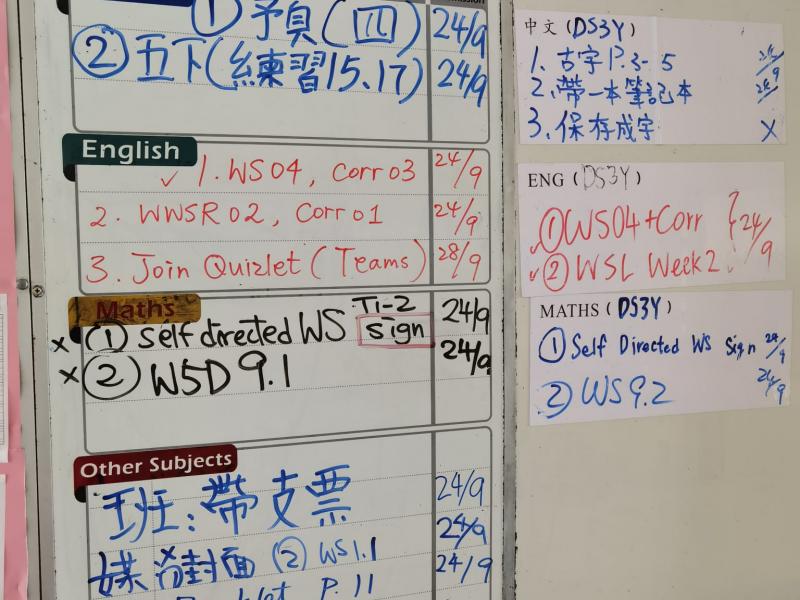 ① 予臭(四) 24/9
② 五下(練習15.17) 24/9
English
✓ 1. WS04, Corr03 24/9
2. WWSR02, Corr01 24/9
3. Join Quizlet (Teams) 28/9
Maths
× ① Self directed WS Ti-2 sign 24/9
× ② WSD 9.1 24/9
Other Subjects
班:帶支票 24/9
封面 (2) WS1.1 24/9
24/9
P. 11
中文 (DS3Y)
1. 古字 P.3-5 24/9
2. 帶一本筆記本 24/9
3. 保存成字 ×
ENG (DS3Y)
✓ ① WS04+Corr } 24/9
✓ ② WSL Week2
MATHS (DS3Y)
① Self Directed WS Sign 24/9
② WS 9.2 24/9